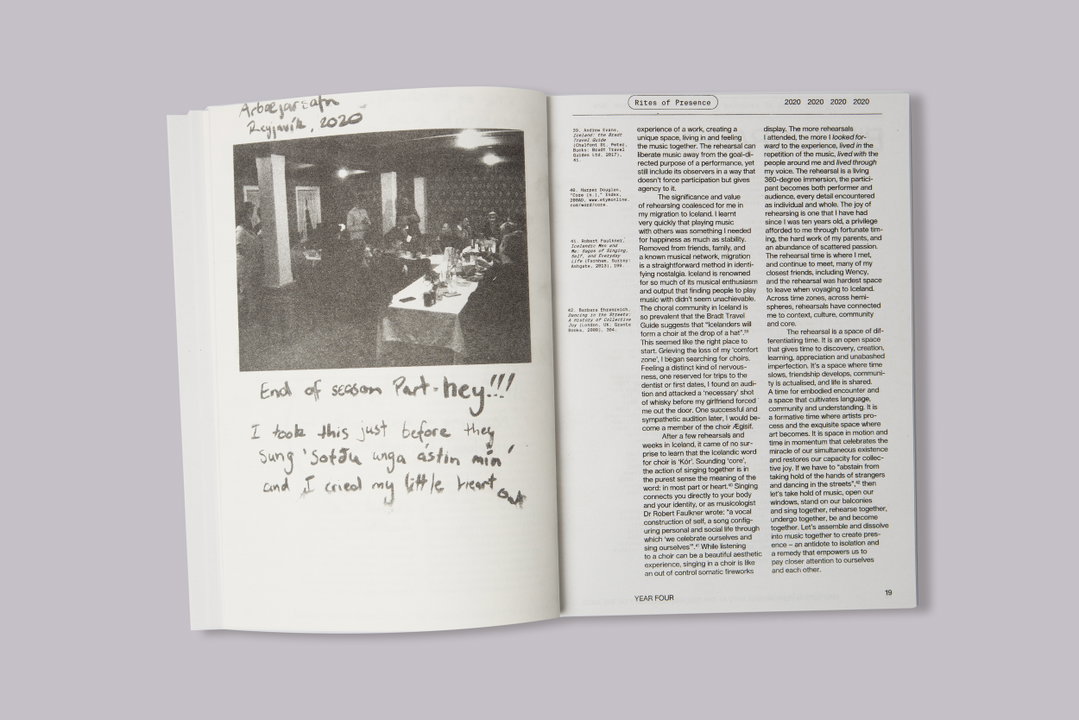 Arbæjarsafn
Reyjavík, 2020
End of season Part-hey!!!
I took this just before they
sung 'Sofðu unga ástin mín'
and I cried my little heart out
Rites of Presence
2020 2020 2020 2020
39. Andrew Evans,
Iceland: the Bradt
Travel Guide
(Chalfont St. Peter,
Bucks: Bradt Travel
Guides Ltd, 2017),
41.
40. Harper Douglas,
"Core (n.)," Index,
2006D. www.etymonline.
com/word/core.
41. Robert Faulkner,
Icelandic Men and
Me: Sagas of Singing,
Self, and Everyday
Life (Farnham, Surrey:
Ashgate, 2013), 199.
42. Barbara Ehrenreich,
Dancing in the Streets:
A History of Collective
Joy (London, UK: Granta
Books, 2008), 304.
experience of a work, creating a
unique space, living in and feeling
the music together. The rehearsal can
liberate music away from the goal-di-
rected purpose of a performance, yet
still include its observers in a way that
doesn't force participation but gives
agency to it.
The significance and value
of rehearsing coalesced for me in
my migration to Iceland. I learnt
very quickly that playing music
with others was something I needed
for happiness as much as stability.
Removed from friends, family, and
a known musical network, migration
is a straightforward method in identi-
fying nostalgia. Iceland is renowned
for so much of its musical enthusiasm
and output that finding people to play
music with didn't seem unachievable.
The choral community in Iceland is
so prevalent that the Bradt Travel
Guide suggests that "Icelanders will
form a choir at the drop of a hat".³⁹
This seemed like the right place to
start. Grieving the loss of my 'comfort
zone', I began searching for choirs.
Feeling a distinct kind of nervous-
ness, one reserved for trips to the
dentist or first dates, I found an audi-
tion and attacked a 'necessary' shot
of whisky before my girlfriend forced
me out the door. One successful and
sympathetic audition later, I would be-
come a member of the choir Ægisif.
After a few rehearsals and
weeks in Iceland, it came of no sur-
prise to learn that the Icelandic word
for choir is 'Kór'. Sounding 'core',
the action of singing together is in
the purest sense the meaning of the
word: in most part or heart.⁴⁰ Singing
connects you directly to your body
and your identity, or as musicologist
Dr Robert Faulkner wrote: "a vocal
construction of self, a song config-
uring personal and social life through
which 'we celebrate ourselves and
sing ourselves'".⁴¹ While listening
to a choir can be a beautiful aesthetic
experience, singing in a choir is like
an out of control somatic fireworks
display. The more rehearsals
I attended, the more I looked for-
ward to the experience, lived in the
repetition of the music, lived with the
people around me and lived through
my voice. The rehearsal is a living
360-degree immersion, the partici-
pant becomes both performer and
audience, every detail encountered
as individual and whole. The joy of
rehearsing is one that I have had
since I was ten years old, a privilege
afforded to me through fortunate tim-
ing, the hard work of my parents, and
an abundance of scattered passion.
The rehearsal time is where I met,
and continue to meet, many of my
closest friends, including Wency,
and the rehearsal was hardest space
to leave when voyaging to Iceland.
Across time zones, across hemi-
spheres, rehearsals have connected
me to context, culture, community
and core.
The rehearsal is a space of dif-
ferentiating time. It is an open space
that gives time to discovery, creation,
learning, appreciation and unabashed
imperfection. It's a space where time
slows, friendship develops, communi-
ty is actualised, and life is shared.
A time for embodied encounter and
a space that cultivates language,
community and understanding. It is
a formative time where artists pro-
cess and the exquisite space where
art becomes. It is space in motion and
time in momentum that celebrates the
miracle of our simultaneous existence
and restores our capacity for collec-
tive joy. If we have to "abstain from
taking hold of the hands of strangers
and dancing in the streets",⁴² then
let's take hold of music, open our
windows, stand on our balconies
and sing together, rehearse together,
undergo together, be and become
together. Let's assemble and dissolve
into music together to create pres-
ence – an antidote to isolation and
a remedy that empowers us to
pay closer attention to ourselves
and each other.
YEAR FOUR
19